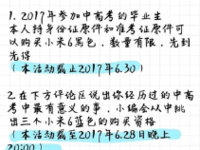 1. 2017年参加中高考的毕业生
本人持身份证原件和准考证原件可
以购买小米6黑色，数量有限，先到
先得
（本活动截止2017年6.30）
2. 在下方评论区说出你经历过的中高
考中最有意义的事，小编会从中挑
出三个小米6蓝色的购买资格
（本活动截至2017年6.28日晚上
20:00）